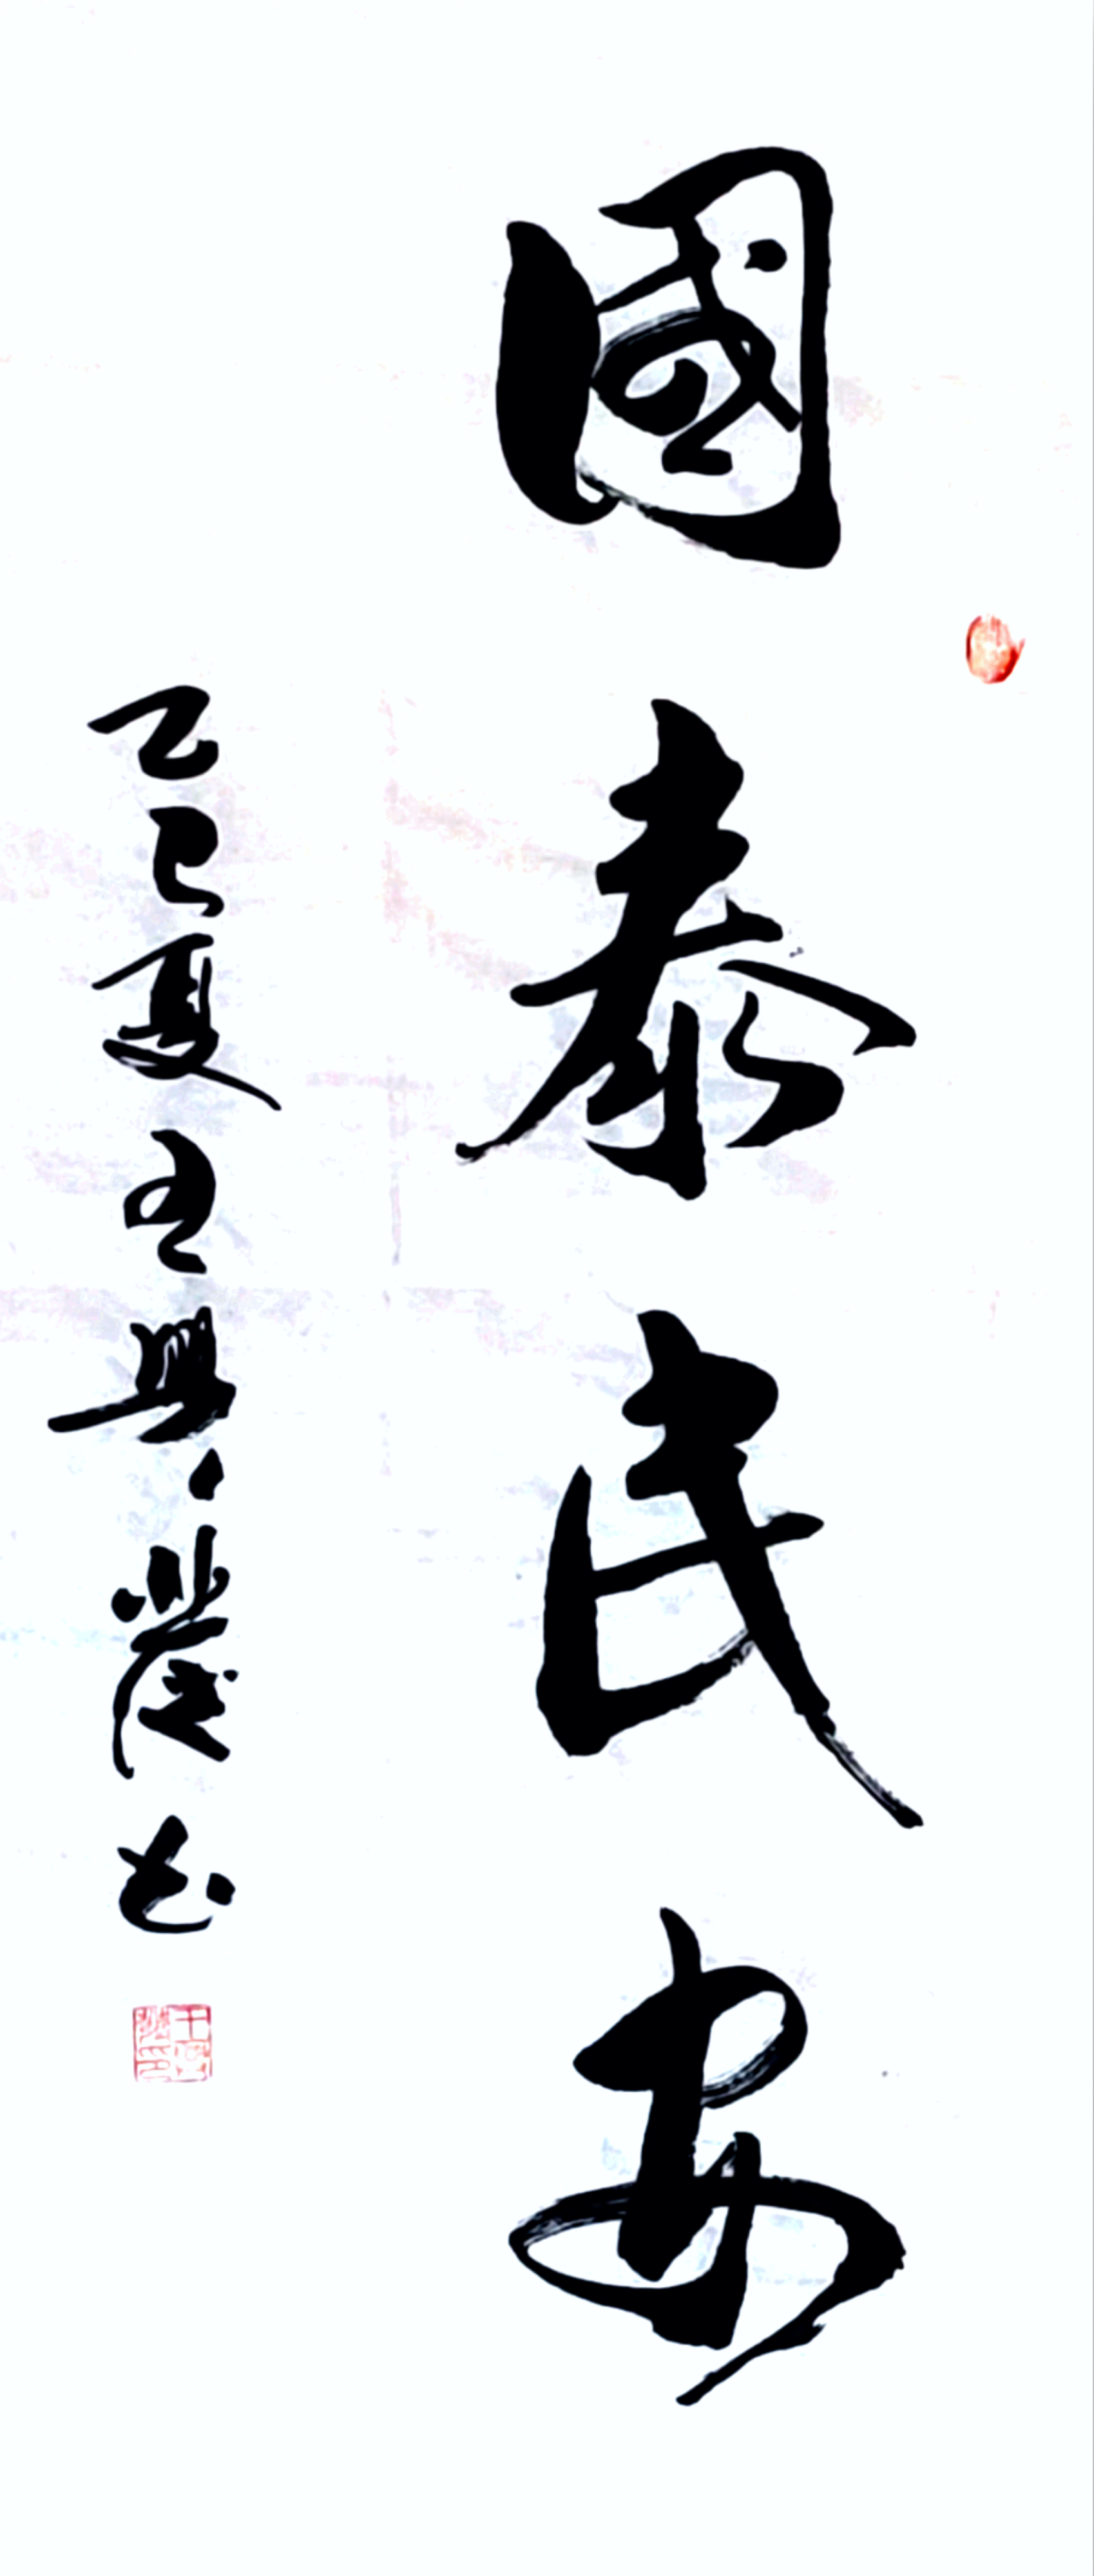 國泰民安
乙巳夏王興華书